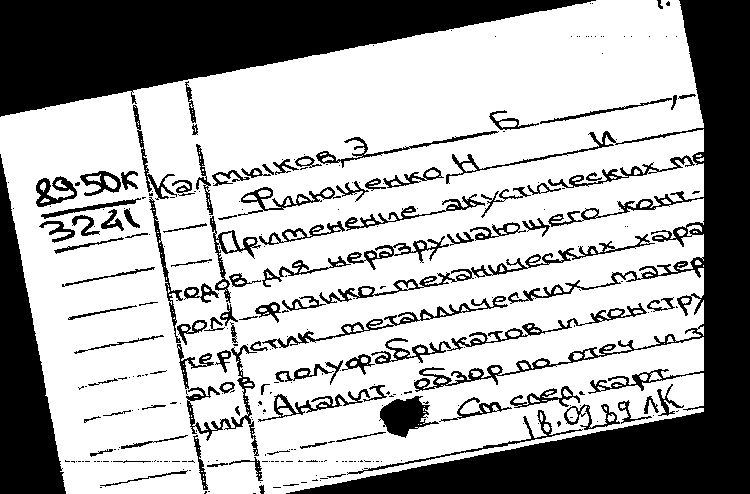 89-50К
3241
Калмыков, Э Б ,
Филющенко, Н И
Применение акустических ме
тодов для неразрушающего конт-
роля физико-механических хара
теристик металлических матер
алов, полуфабрикатов и констру
ций : Аналит. обзор по отеч и з
См след. карт
18.09 89 ЛК